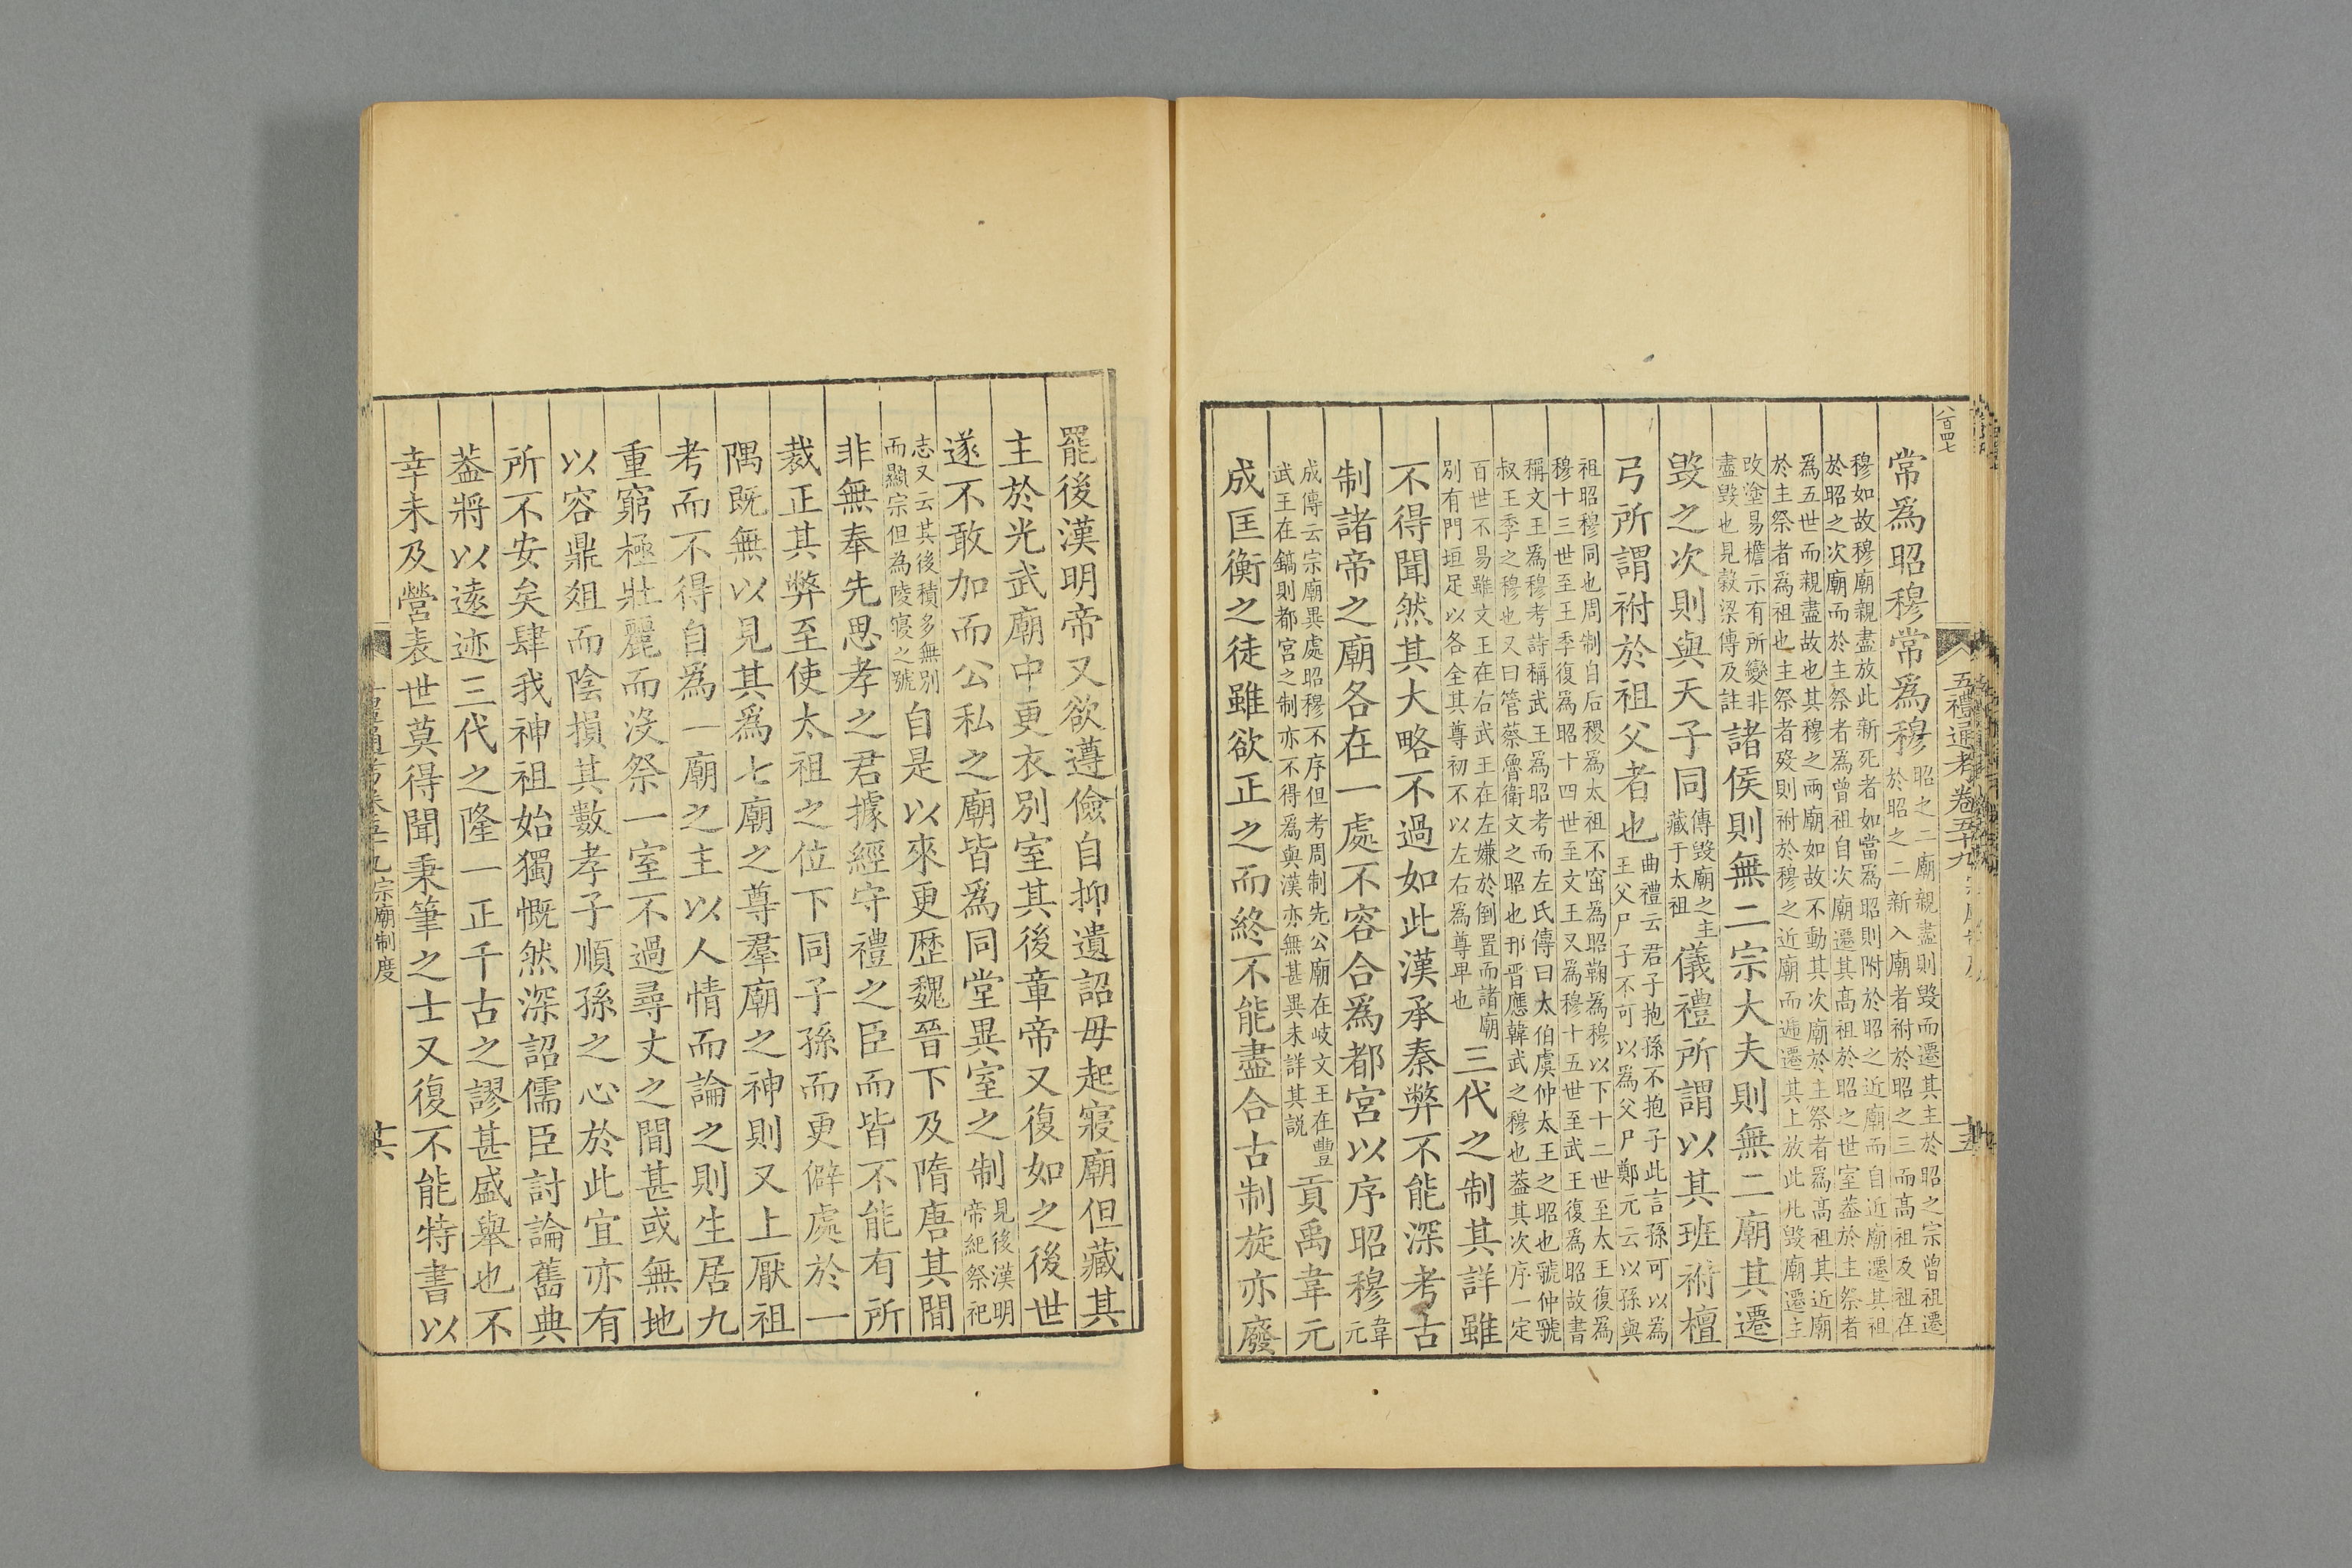 八百四七
五禮通考卷五十九
十五
常爲昭穆常爲穆昭之二廟親盡則毁而遷其主於昭之宗曾祖遷於昭之二新入廟者祔於昭之三而髙祖及祖在
穆如故穆廟親盡放此新死者如當爲昭則附於昭之近廟而自近廟遷其祖於昭之次廟而於主祭者爲曾祖自次廟遷其髙祖於昭之世室葢於主祭者
爲五世而親盡故也其穆之兩廟如故不動其次廟於主祭者爲髙祖其近廟於主祭者爲祖也主祭者歿則祔於穆之近廟而遞遷其上放此凡毁廟遷主
改塗易檐示有所變非盡毁也見穀梁傳及註諸侯則無二宗大夫則無二廟其遷
毁之次則與天子同傳毁廟之主藏于太祖儀禮所謂以其班祔檀
弓所謂祔於祖父者也曲禮云君子抱孫不抱子此言孫可以爲王父尸子不可以為父尸鄭元云以孫與
祖昭穆同也周制自后稷爲太祖不窋爲昭鞠爲穆以下十二世至太王復爲穆十三世至王季復爲昭十四世至文王又爲穆十五世至武王復爲昭故書
稱文王爲穆考詩稱武王爲昭考而左氏傳曰太伯虞仲太王之昭也虢仲虢叔王季之穆也又曰管蔡魯衛文之昭也邘晋應韓武之穆也葢其次序一定
百世不易雖文王在右武王在左嫌於倒置而諸廟別有門垣足以各全其尊初不以左右爲尊卑也三代之制其詳雖
不得聞然其大略不過如此漢承秦弊不能深考古
制諸帝之廟各在一處不容合爲都宮以序昭穆韋元
成傳云宗廟異處昭穆不序但考周制先公廟在岐文王在豐武王在鎬則都宮之制亦不得爲與漢亦無甚異未詳其説貢禹韋元
成匡衡之徒雖欲正之而終不能盡合古制旋亦廢
罷後漢明帝又欲遵儉自抑遺詔毋起寢廟但藏其
主於光武廟中更衣別室其後章帝又復如之後世
遂不敢加而公私之廟皆爲同堂異室之制見後漢明帝紀祭祀
志又云其後積多無別而顯宗但為陵寢之號自是以來更歴魏晉下及隋唐其間
非無奉先思孝之君據經守禮之臣而皆不能有所
裁正其弊至使太祖之位下同子孫而更僻處於一
隅既無以見其爲七廟之尊羣廟之神則又上厭祖
考而不得自爲一廟之主以人情而論之則生居九
重窮極壯麗而沒祭一室不過尋丈之間甚或無地
以容鼎俎而陰損其數孝子順孫之心於此宜亦有
所不安矣肆我神祖始獨慨然深詔儒臣討論舊典
葢將以遠迹三代之隆一正千古之謬甚盛舉也不
幸未及營表世莫得聞秉筆之士又復不能特書以
宗廟制度